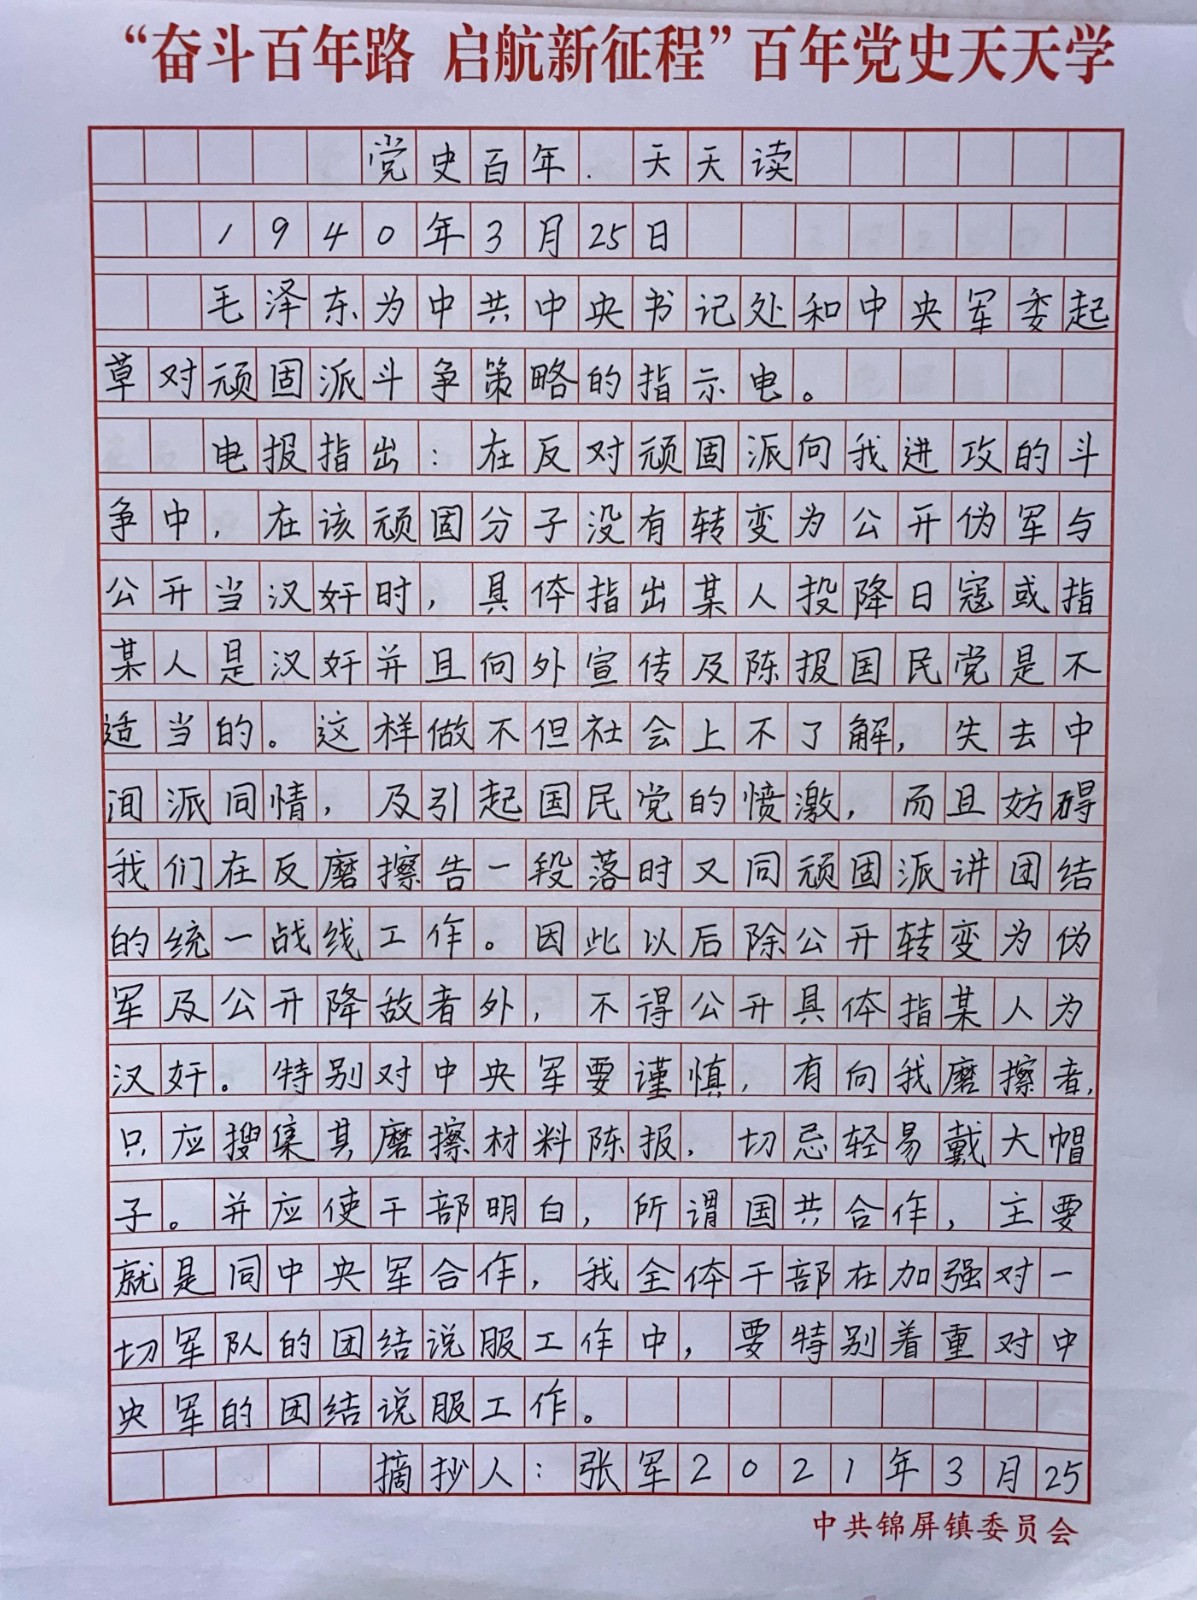 “奋斗百年路 启航新征程”百年党史天天学
党史百年.天天读
1940年3月25日
毛泽东为中共中央书记处和中央军委起
草对顽固派斗争策略的指示电。
电报指出：在反对顽固派向我进攻的斗
争中，在该顽固分子没有转变为公开伪军与
公开当汉奸时，具体指出某人投降日寇或指
某人是汉奸并且向外宣传及陈报国民党是不
适当的。这样做不但社会上不了解，失去中
间派同情，及引起国民党的愤激，而且妨碍
我们在反磨擦告一段落时又同顽固派讲团结
的统一战线工作。因此以后除公开转变为伪
军及公开降敌者外，不得公开具体指某人为
汉奸。特别对中央军要谨慎，有向我磨擦者，
只应搜集其磨擦材料陈报，切忌轻易戴大帽
子。并应使干部明白，所谓国共合作，主要
就是同中央军合作，我全体干部在加强对一
切军队的团结说服工作中，要特别着重对中
央军的团结说服工作。
摘抄人：张军2021年3月25
中共锦屏镇委员会